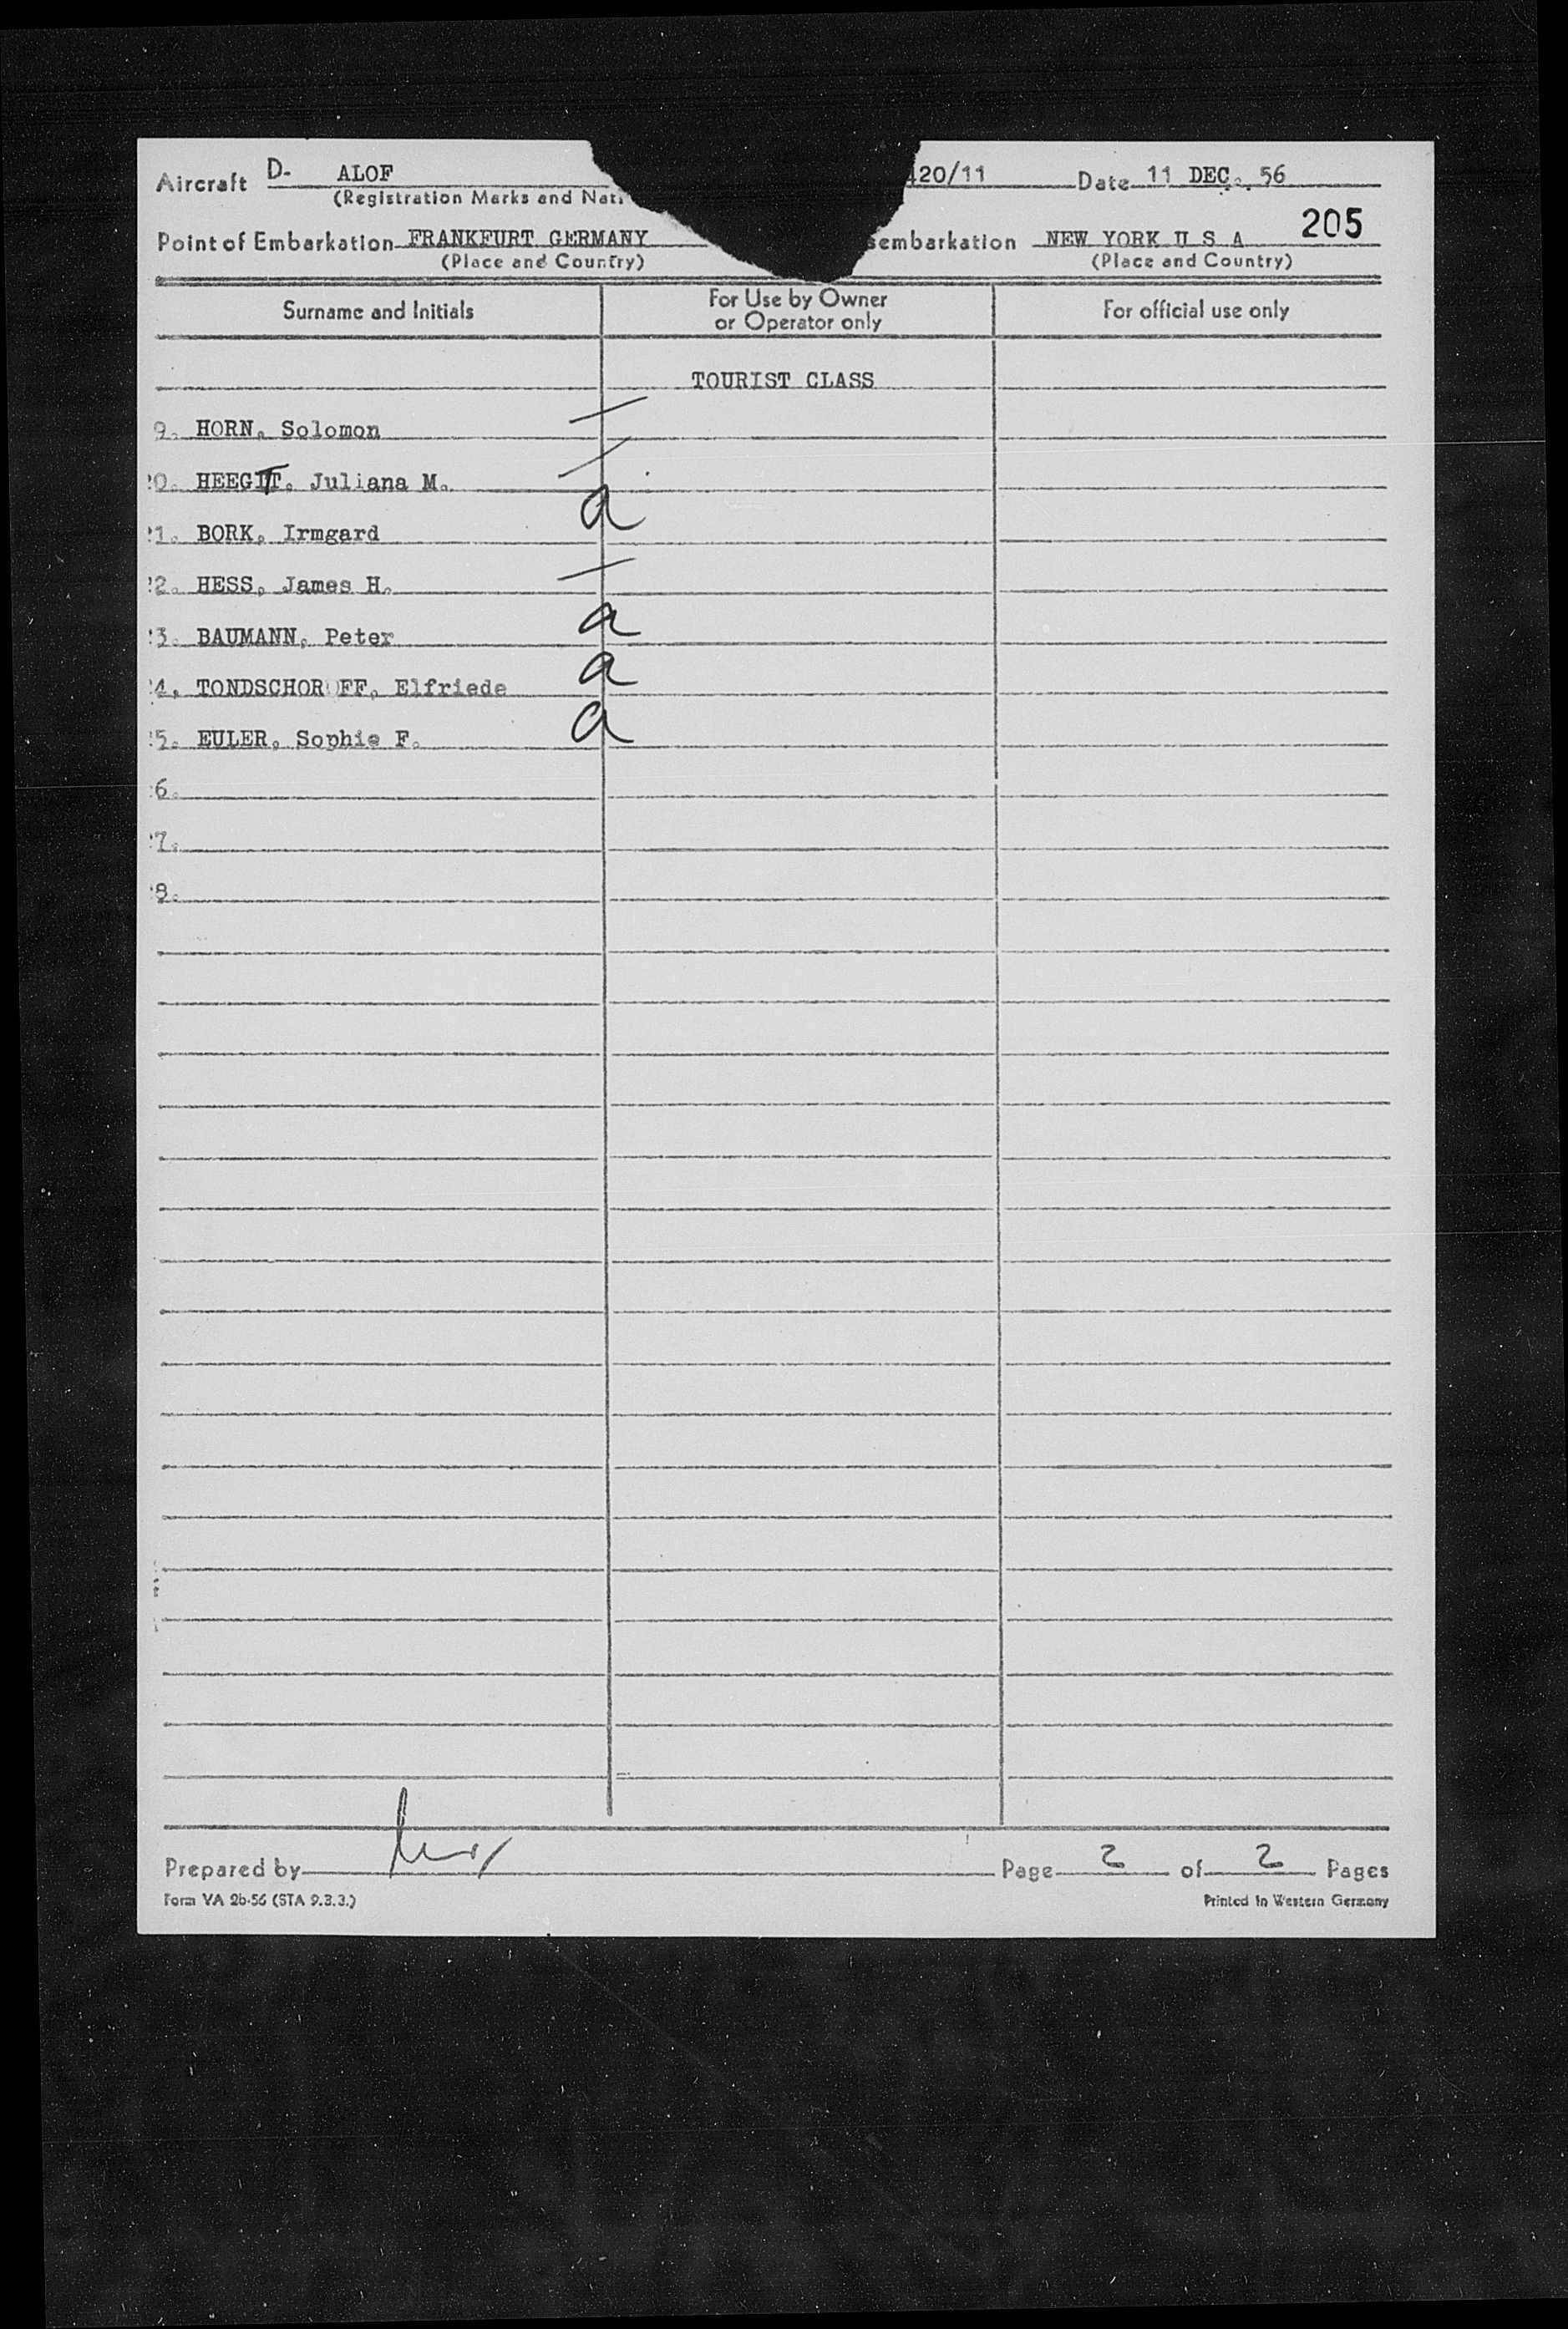 Aircraft D- ALOF 420/11 Date 11 DEC. 56
(Registration Marks and Nati
205
Point of Embarkation FRANKFURT GERMANY sembarkation NEW YORK U S A
(Place and Country) (Place and Country)
Surname and Initials For Use by Owner or Operator only For official use only
TOURIST CLASS
9. HORN, Solomon
20. HEEGT, Juliana M.
21. BORK, Irmgard a
22. HESS, James H.
23. BAUMANN, Peter a
24. TONDSCHOROFF, Elfriede a
25. EULER, Sophie F. a
26.
27.
28.
Prepared by Page 2 of 2 Pages
Form VA 2b-56 (STA 9.3.3.) Printed in Western Germany